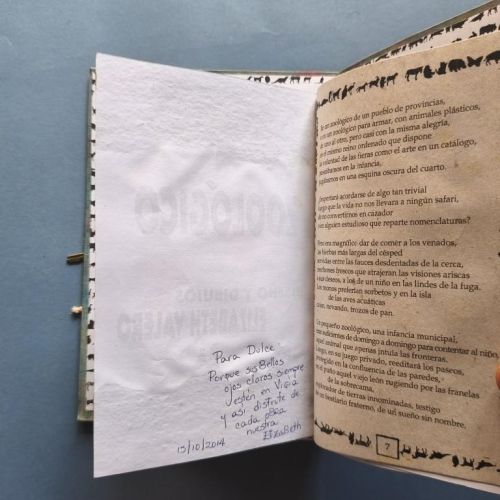 ZOOLÓGICO
Y DIBUJOS
ELIZABETH VALERO
Para Dulce
Porque sus Bellos
ojos claros siempre
estén en Vigia
y así disfrute de
cada obra
nuestra
Elizabeth
15/10/2014
un zoológico de un pueblo de provincias,
un zoológico para armar, con animales plásticos,
uno al otro, pero casi con la misma alegría,
el mismo reino ordenado que dispone
la voluntad de las fieras como el arte en un catálogo,
en la infancia,
en una esquina oscura del cuarto.
acordarse de algo tan trivial
que la vida no nos llevara a ningún safari,
no convertirnos en cazador
en alguien estudioso que reparte nomenclaturas?
era magnífico: dar de comer a los venados,
hierbas más largas del césped
entre las fauces desdentadas de la cerca,
frescos que atrajeran las visiones ariscas
sus deseos, a los de un niño en las lindes de la fuga.
monos preferían sorbetos y en la isla
de las aves acuáticas
nevando, trozos de pan.
pequeño zoológico, una infancia municipal,
de domingo a domingo para contentar al niño,
animal que apenas intuía las fronteras.
en su juego privado, reeditará los paseos,
en la confluencia de las paredes,
puño aquel viejo león rugiendo por las franelas
de la sobrecama,
de tierras innominadas, testigo
un bestiario fraterno, de un sueño sin nombre.
7